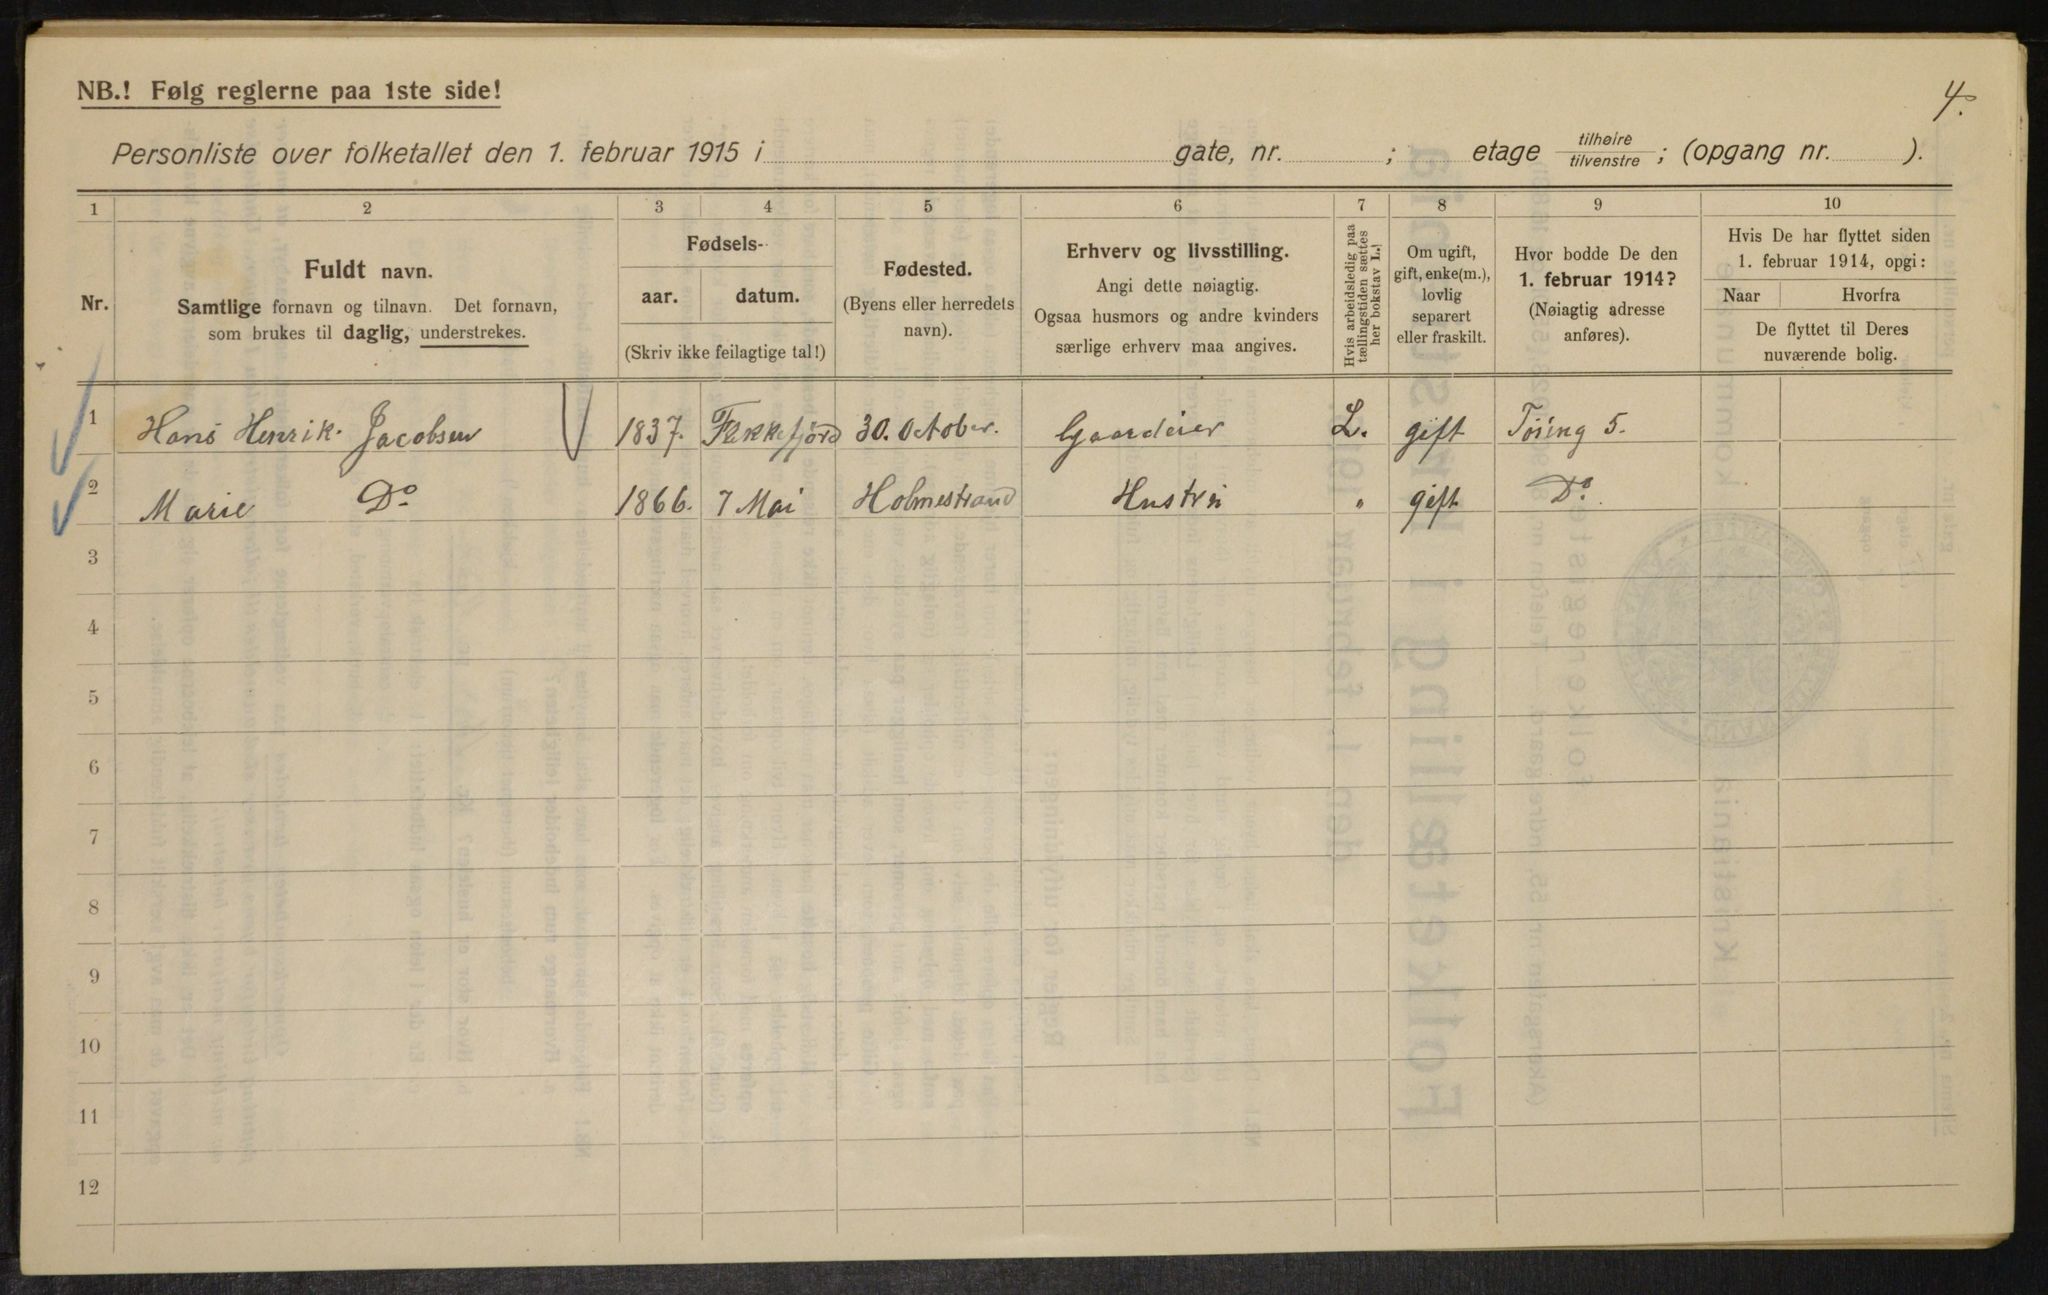 4.
NB.! Følg reglerne paa 1ste side!
Personliste over folketallet den 1. februar 1915 i gate, nr. ; etage tilhøire tilvenstre ; (opgang nr. ).
1 2 3 4 5 6 7 8 9 10
Nr.
Fuldt navn.
Samtlige fornavn og tilnavn. Det fornavn,
som brukes til daglig, understrekes.
Fødsels-
aar. datum.
(Skriv ikke feilagtige tal!)
Fødested.
(Byens eller herredets
navn).
Erhverv og livsstilling.
Angi dette nøiagtig.
Ogsaa husmors og andre kvinders
særlige erhverv maa angives.
Hvis arbeidsledig paa
tællingstiden sættes
her bokstav L.!
Om ugift,
gift, enke(m.),
lovlig
separert
eller fraskilt.
Hvor bodde De den
1. februar 1914?
(Nøiagtig adresse
anføres).
Hvis De har flyttet siden
1. februar 1914, opgi:
Naar Hvorfra
De flyttet til Deres
nuværende bolig.
1 Hans Henrik. Jacobsen 1837. Flekkefjord 30. October. Gaardeier L. gift Tøsing 5.
2 Marie Do 1866. 7 Mai Holmestrand Hustru " gift Do.
3
4
5
6
7
8
9
10
11
12